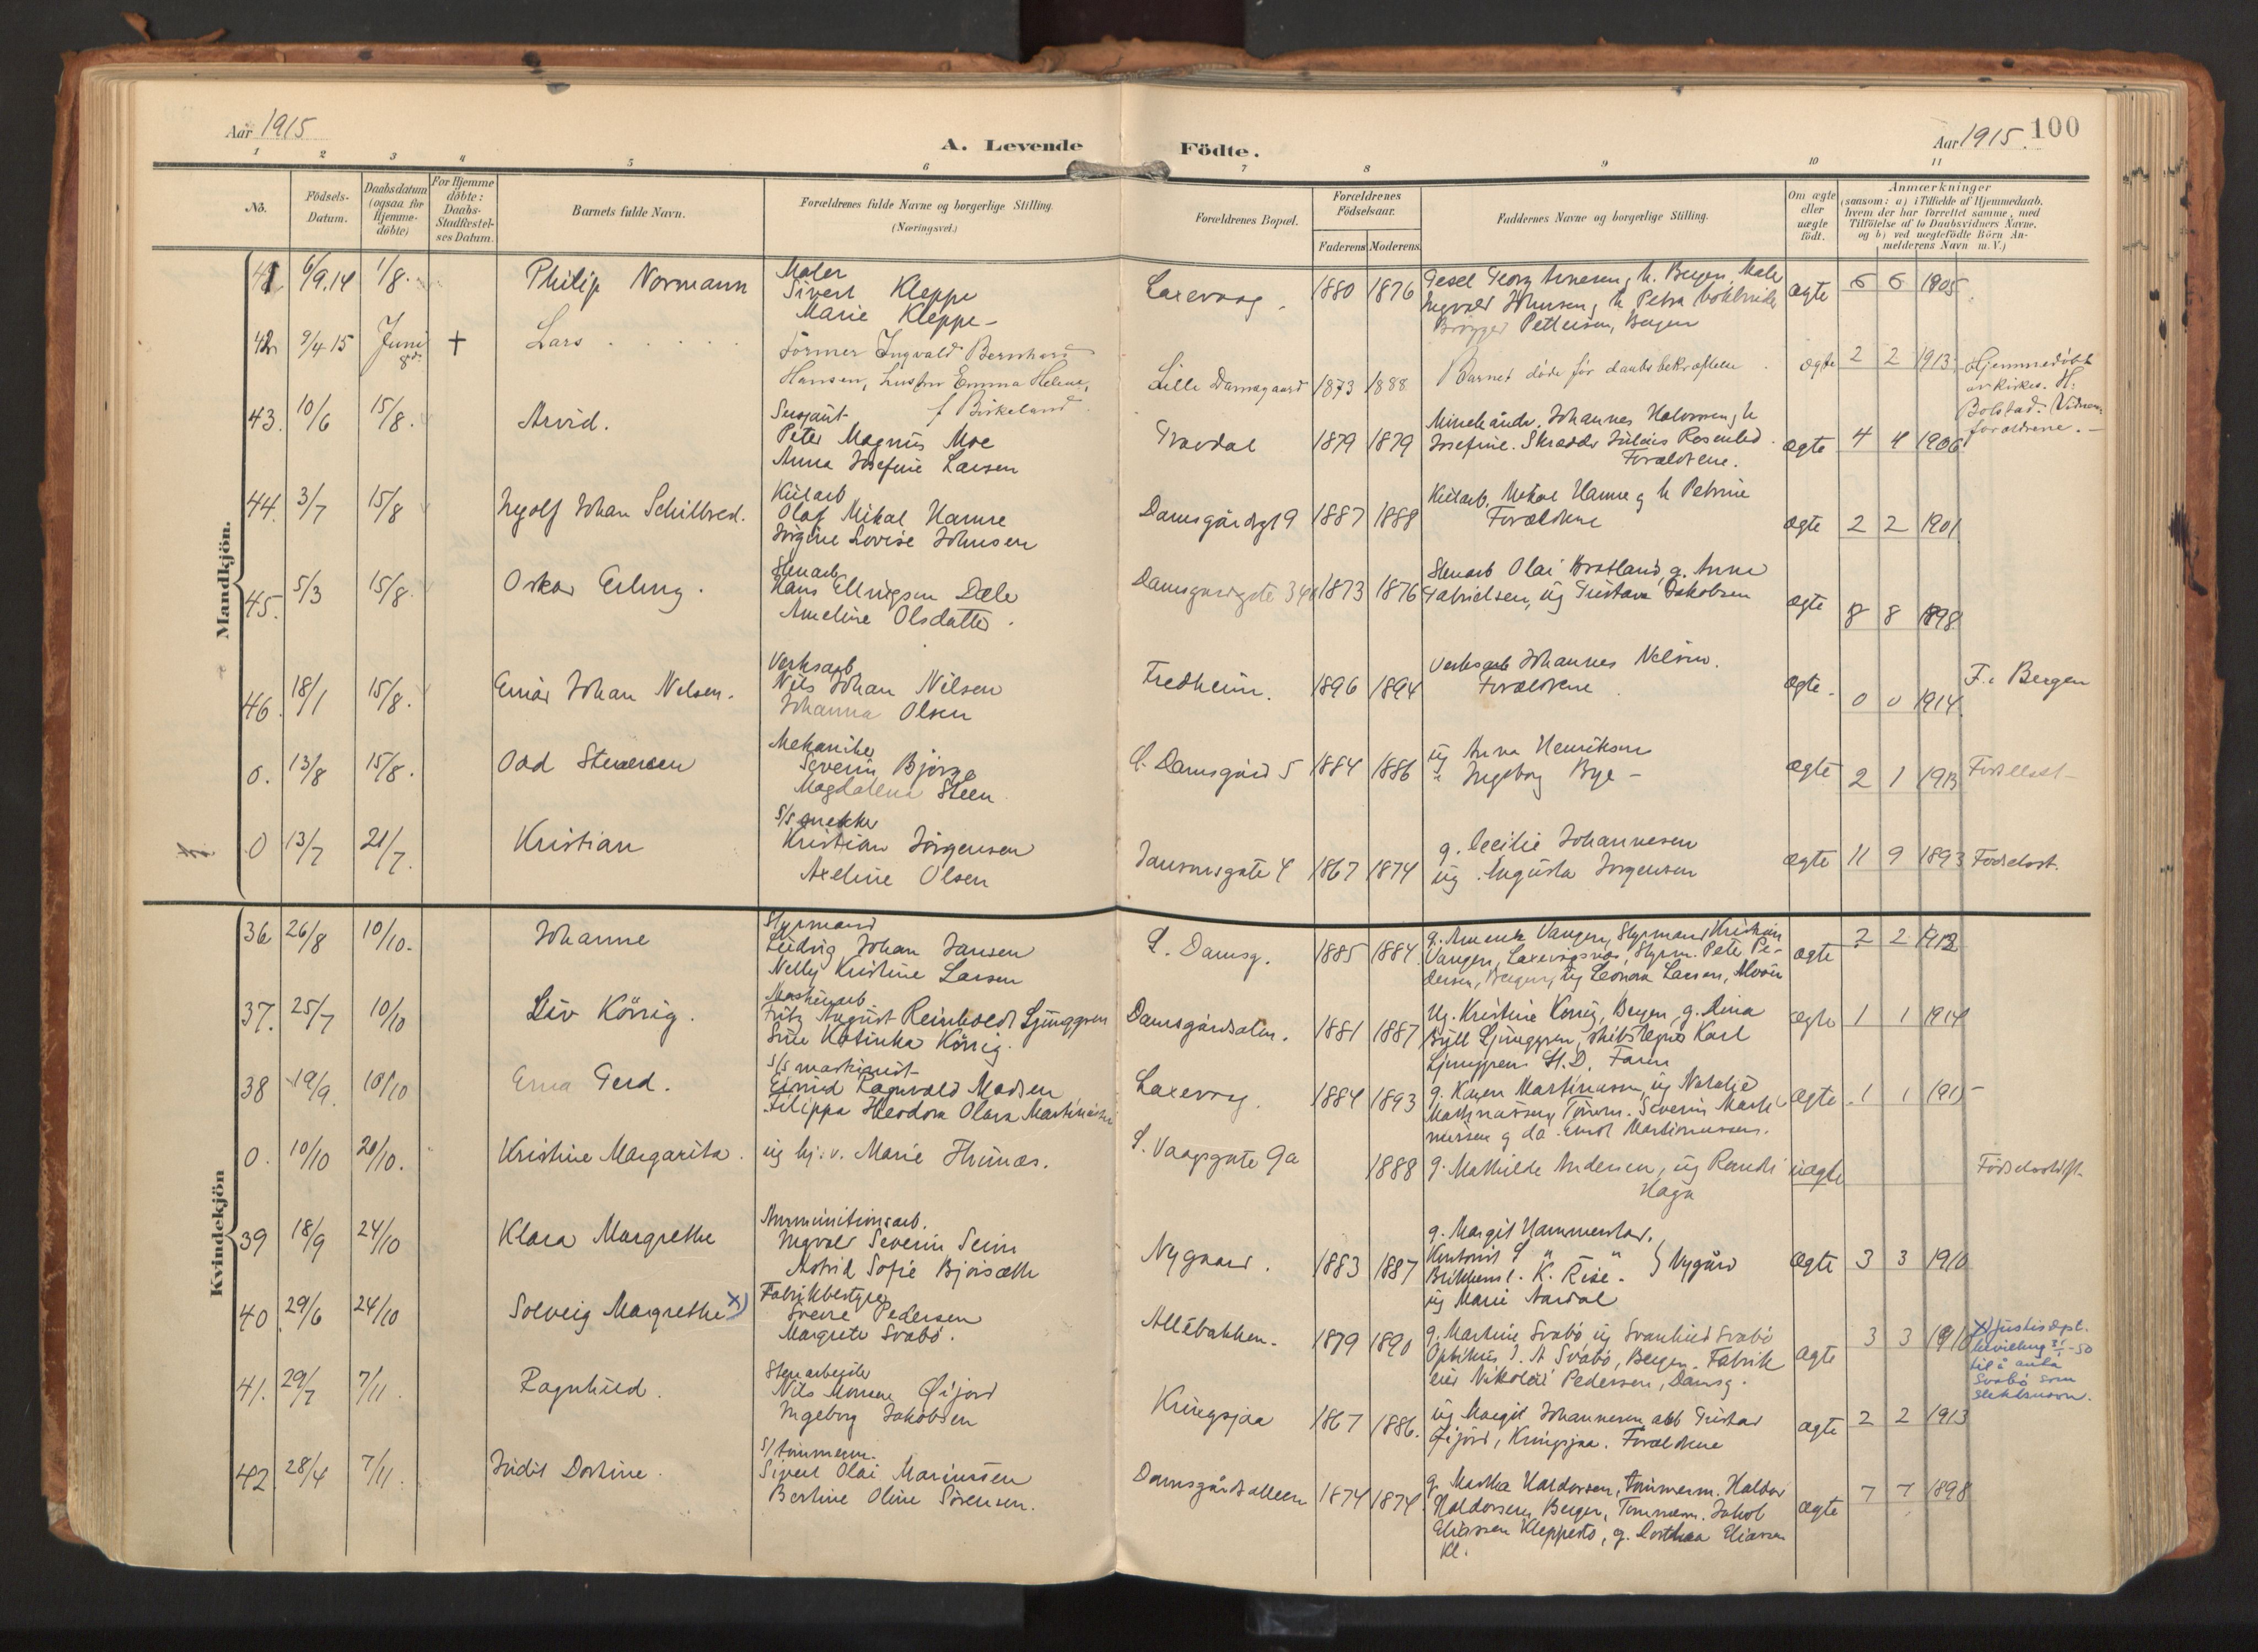 Aar 1915
A. Levende
Födte.
Aar 1915.
100
1 2 3 4 5 6 7 8 9 10 11
No.
Födsels-
Datum.
Daabsdatum
(ogsaa for
Hjemme-
döbte)
For Hjemme
döbte:
Daabs-
Stadfæstel-
ses Datum.
Barnets fulde Navn.
Forældrenes fulde Navne og borgerlige Stilling.
(Næringsvei.)
Forældrenes Bopæl.
Forældrenes
Födselsaar.
Faderens
Moderens
Faddernes Navne og borgerlige Stilling.
Om ægte
eller
uægte
födt.
Anmærkninger
(saasom: a) i Tilfælde af Hjemmedaab,
hvem der har forrettet samme, med
Tilföielse af to Daabsvidners Navne.
og b) ved uægtefödte Börn An-
melderens Navn m. V.)
Mandkjön.
41 6/9.14 1/8. Philip Normann
Maler
Sivert Kleppe
Marie Kleppe
Laxevaag. 1880 1876
Ingvald Johnsen,
Pettersen, Bergen
ægte 6 6 1905
42 9/4 15 Juni + Lars
Former Ingvald Bernhard
Hansen, hustru Emma Helene,
f Birkeland
Lille Damsgaard 1873 1888
Barnet döde för daabsbekræftelse
ægte 2 2 1913
Hjemmedöbt
av kirkes. H.
Bolstad. Vidner
forældrene.
43. 10/6 15/8. Arvid.
Sersjant
Peter Magnus Moe
Anna Josefine Larsen
1879 1879
Josefine. Skrædder Julius Rosenlid
Forældrene.
ægte 4 4 1906
44. 3/7 15/8 Ingolf Johan Schilbred.
Kularb
Olaf Mikal Hamre
Jörgine Lovise Johnsen
Damsgårdsgt 9 1887 1888
Kularb. Mikal Hamre g h Petrine
Forældrene
ægte 2 2 1901
45. 5/3 15/8. Oskar Erling.
Stenarb
Hans Ellingsen Dale
Ameline Olsdatter.
Damsgardsgate 34 1873 1876
Stenarb Olai Bratland, g. Anna
Gabrielsen, ug Gustava Jakobsen
ægte 8 8 1898
46. 18/1 15/8. Einar Johan Nilsen.
Verksarb
Nils Johan Nilsen
Johanna Olsen
Fredheim. 1896 1894
Verksarb Johannes Nilsen.
Forældrene
ægte 0 0 1914
F. i Bergen
0. 13/8 15/8. Odd Steen
Mekaniker
Severin Bjorge
Magdalena Steen
L. Damsgård 5 1884 1886
ug Anna Henriksen
" Ingeborg Bye
ægte 2 1 1913
Födselsst
0 13/7 21/7. Kristian
S/S snekker
Kristian Jörgensen
Axeline Olsen
Jansonsgate 4 1867 1874
g. Cecilie Johannesen
ug. Augusta Jorgensen
ægte 11 9 1893
Födselsst.
Kvindekjön
36 26/8 10/10. Johanne
Styrmand
Ludvig Johan Jansen
Nelly Kristine Larsen
L. Damsg. 1885 1884
Vangen, Styrmand Kristian
Vangen, Laxevågsnes, Styrm. Peter Pe-
dersen, Bergen, ug Leonora Larsen, Alvöen
ægte 2 2 1912
37. 25/7 10/10 Liv König.
Maskinarb
Fritz August Reinholdt Ljunggren
Sine Katinka König.
Damsgårdsalen. 1881 1887
Ug. Kristine König, Bergen, g. Lina
Ljunggren, Karl
Ljunggren
ægte 1 1 1914
38 19/9. 10/10 Erna Gerd.
S/S maskinist
Eivind Ragnvald Madsen
Filippa Theodora Olava Martinussen
Laxevaag. 1884 1893
g. Karen Martinussen, ug Natalie
Martinussen, Tömm. Severin Marti-
nussen g da. Martinussen.
ægte 1 1 1915
0. 10/10 20/10. Kristine Margarita.
ug hj. v. Marie Thunæs.
L. Vaagsgate 9a
1888
g. Mathilde Andersen, ug Randi
Haga
uægte
Födselsstift.
39 18/9 24/10 Klara Margrethe
Ammunitionsarb.
Ingvald Severin Seim
Astrid Sofie Björsæth
Nygaard. 1883 1887
g. Margit Hammerstad,
Kontorist S " "
K. Risø. } Nygård
ug Marie Aardal
ægte 3 3 1910
40. 29/6 24/10 Solveig Margrethe x)
Fabrikbestyrer
Sverre Pedersen
Margrete Svabö.
Allébakken. 1879 1890
g. Martine Svabö, ug Svanhild Svabö
Optikus J. A Svabö, Bergen. Fabrik
eier Nikolai Pedersen, Damsg.
ægte 3 3 1910
x) Justisdept.
bevilling 31/1-50
til å anta
Svabö som
slektsnavn.
41. 29/7 7/11. Ragnhild.
Stenarbeider
Nils Monsen Öijord
Ingeborg Jakobsen
Kringsjaa 1867 1886.
ug Margit Johannesen, arb Gustav
Öijord, Kringsjaa. Forældrene
ægte 2 2 1913
42. 28/4 7/11. Judit Dortine.
S/ tömmerm.
Sivert Olai Marinussen
Bertine Oline Sörensen.
Damsgårdsalleen 1874 1874
g. Martha Haldorsen, tömmerm. Haldor
Haldorsen, Bergen, Tömmerm. Jakob
Eliassen Kleppestö, g. Dorthea Eliassen
Kl.
ægte 7 7 1898